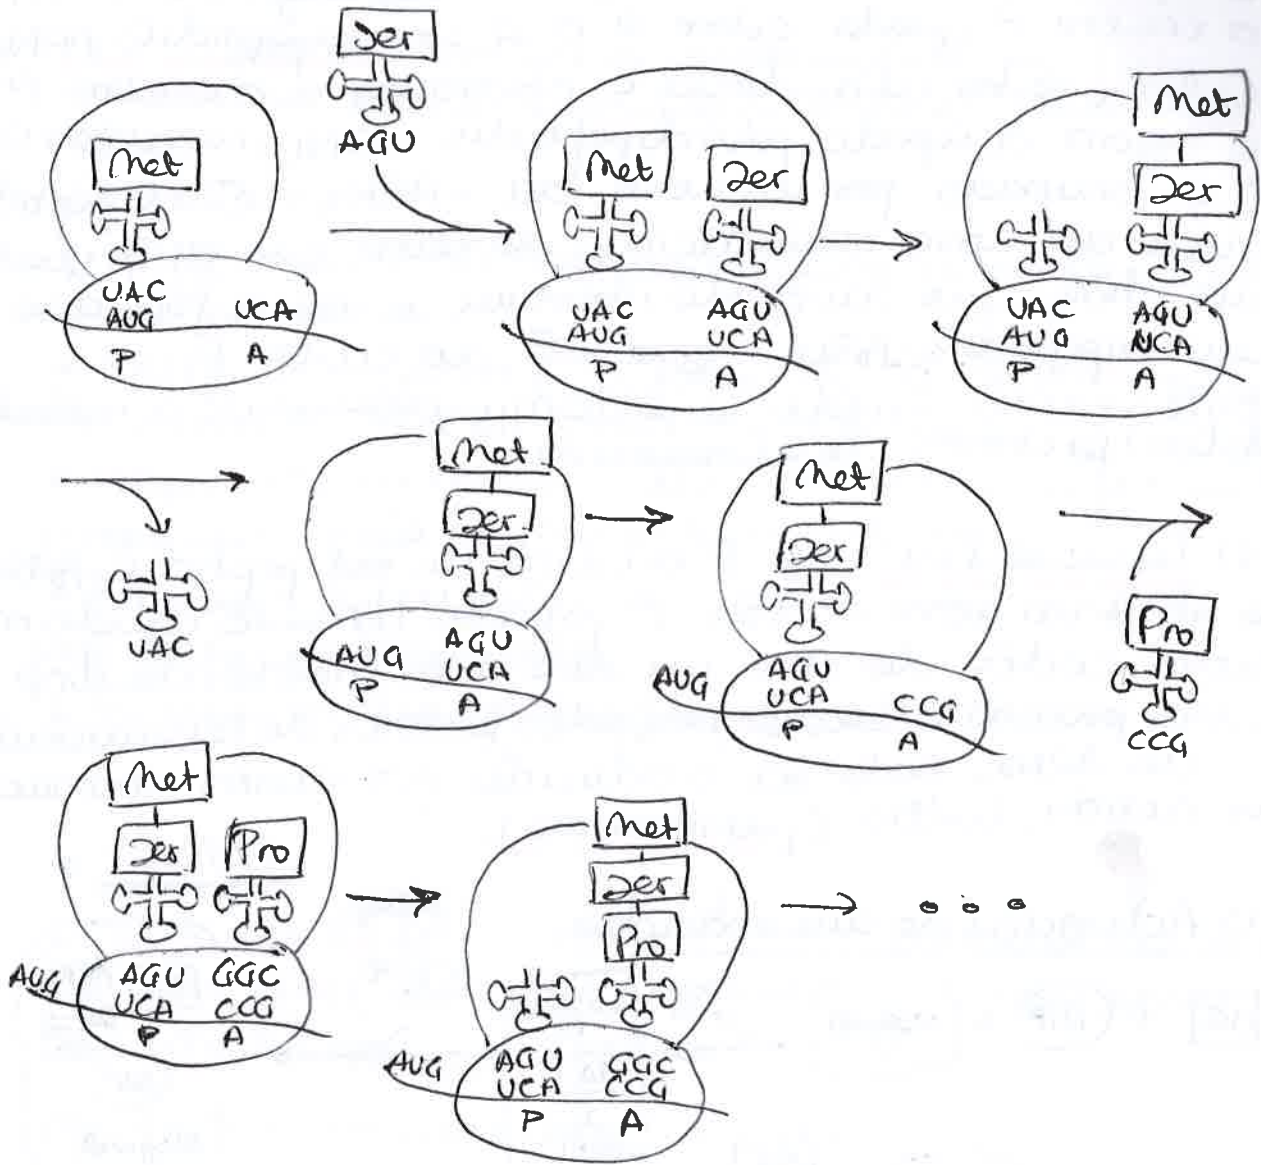 Ser
AGU
Met
UAC
AUG UCA
P A
Met Ser
UAC AGU
AUG UCA
P A
Met
Ser
UAC AGU
AUG UCA
P A
UAC
Met
Ser
AGU
AUG UCA
P A
Met
Ser
AGU
AUG UCA CCG
P A
Pro
CCG
Met
Ser Pro
AGU GGC
AUG UCA CCG
P A
Met
Ser
Pro
AGU GGC
AUG UCA CCG
P A